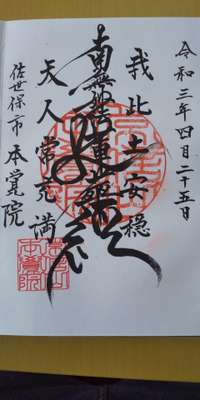 令和三年四月二十五日
我此土安穏
南無妙法蓮華経
天人常充満
佐世保市 本覚院
本覺院